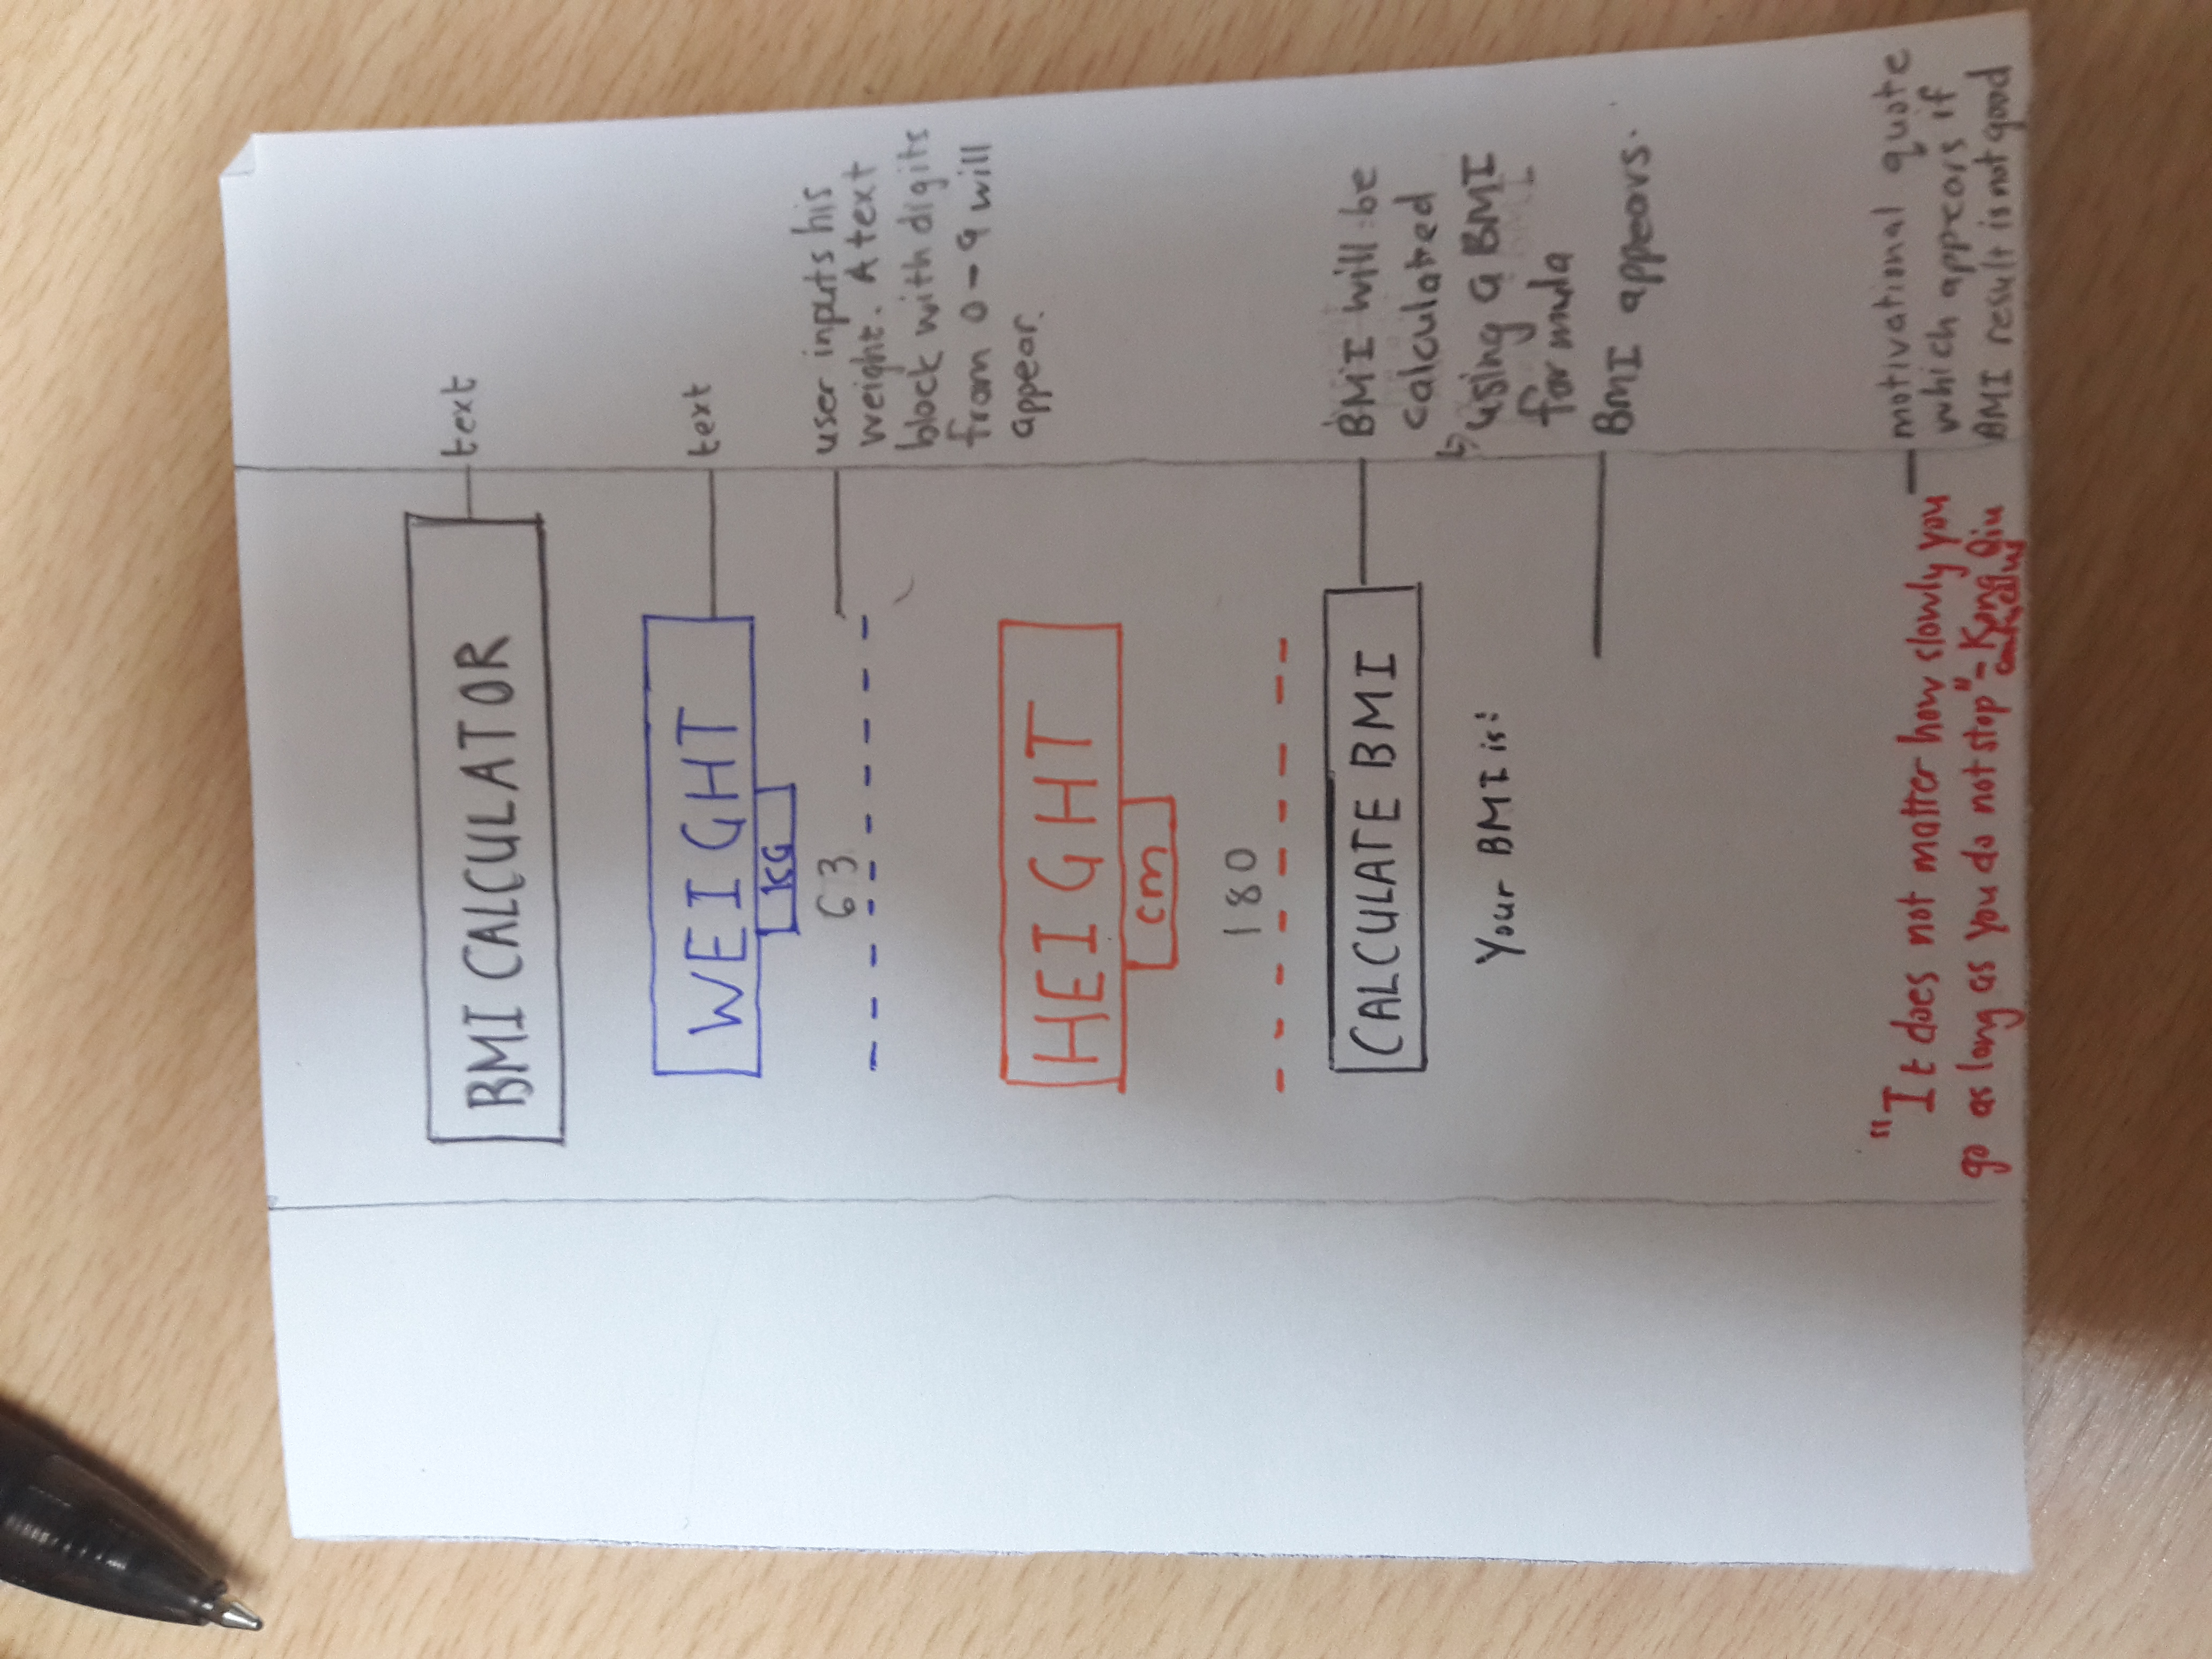 BMI CALCULATOR
text
WEIGHT
text
KG
63
user inputs his
weight. A text
block with digits
from 0-9 will
appear.
HEIGHT
cm
180
CALCULATE BMI
BMI will be
calculated
using a BMI
formula
Your BMI is:
BMI appears.
"It does not matter how slowly you
go as long as you do not stop"- Kong Qiu
Confucius
motivational quote
which appears if
BMI result is not good